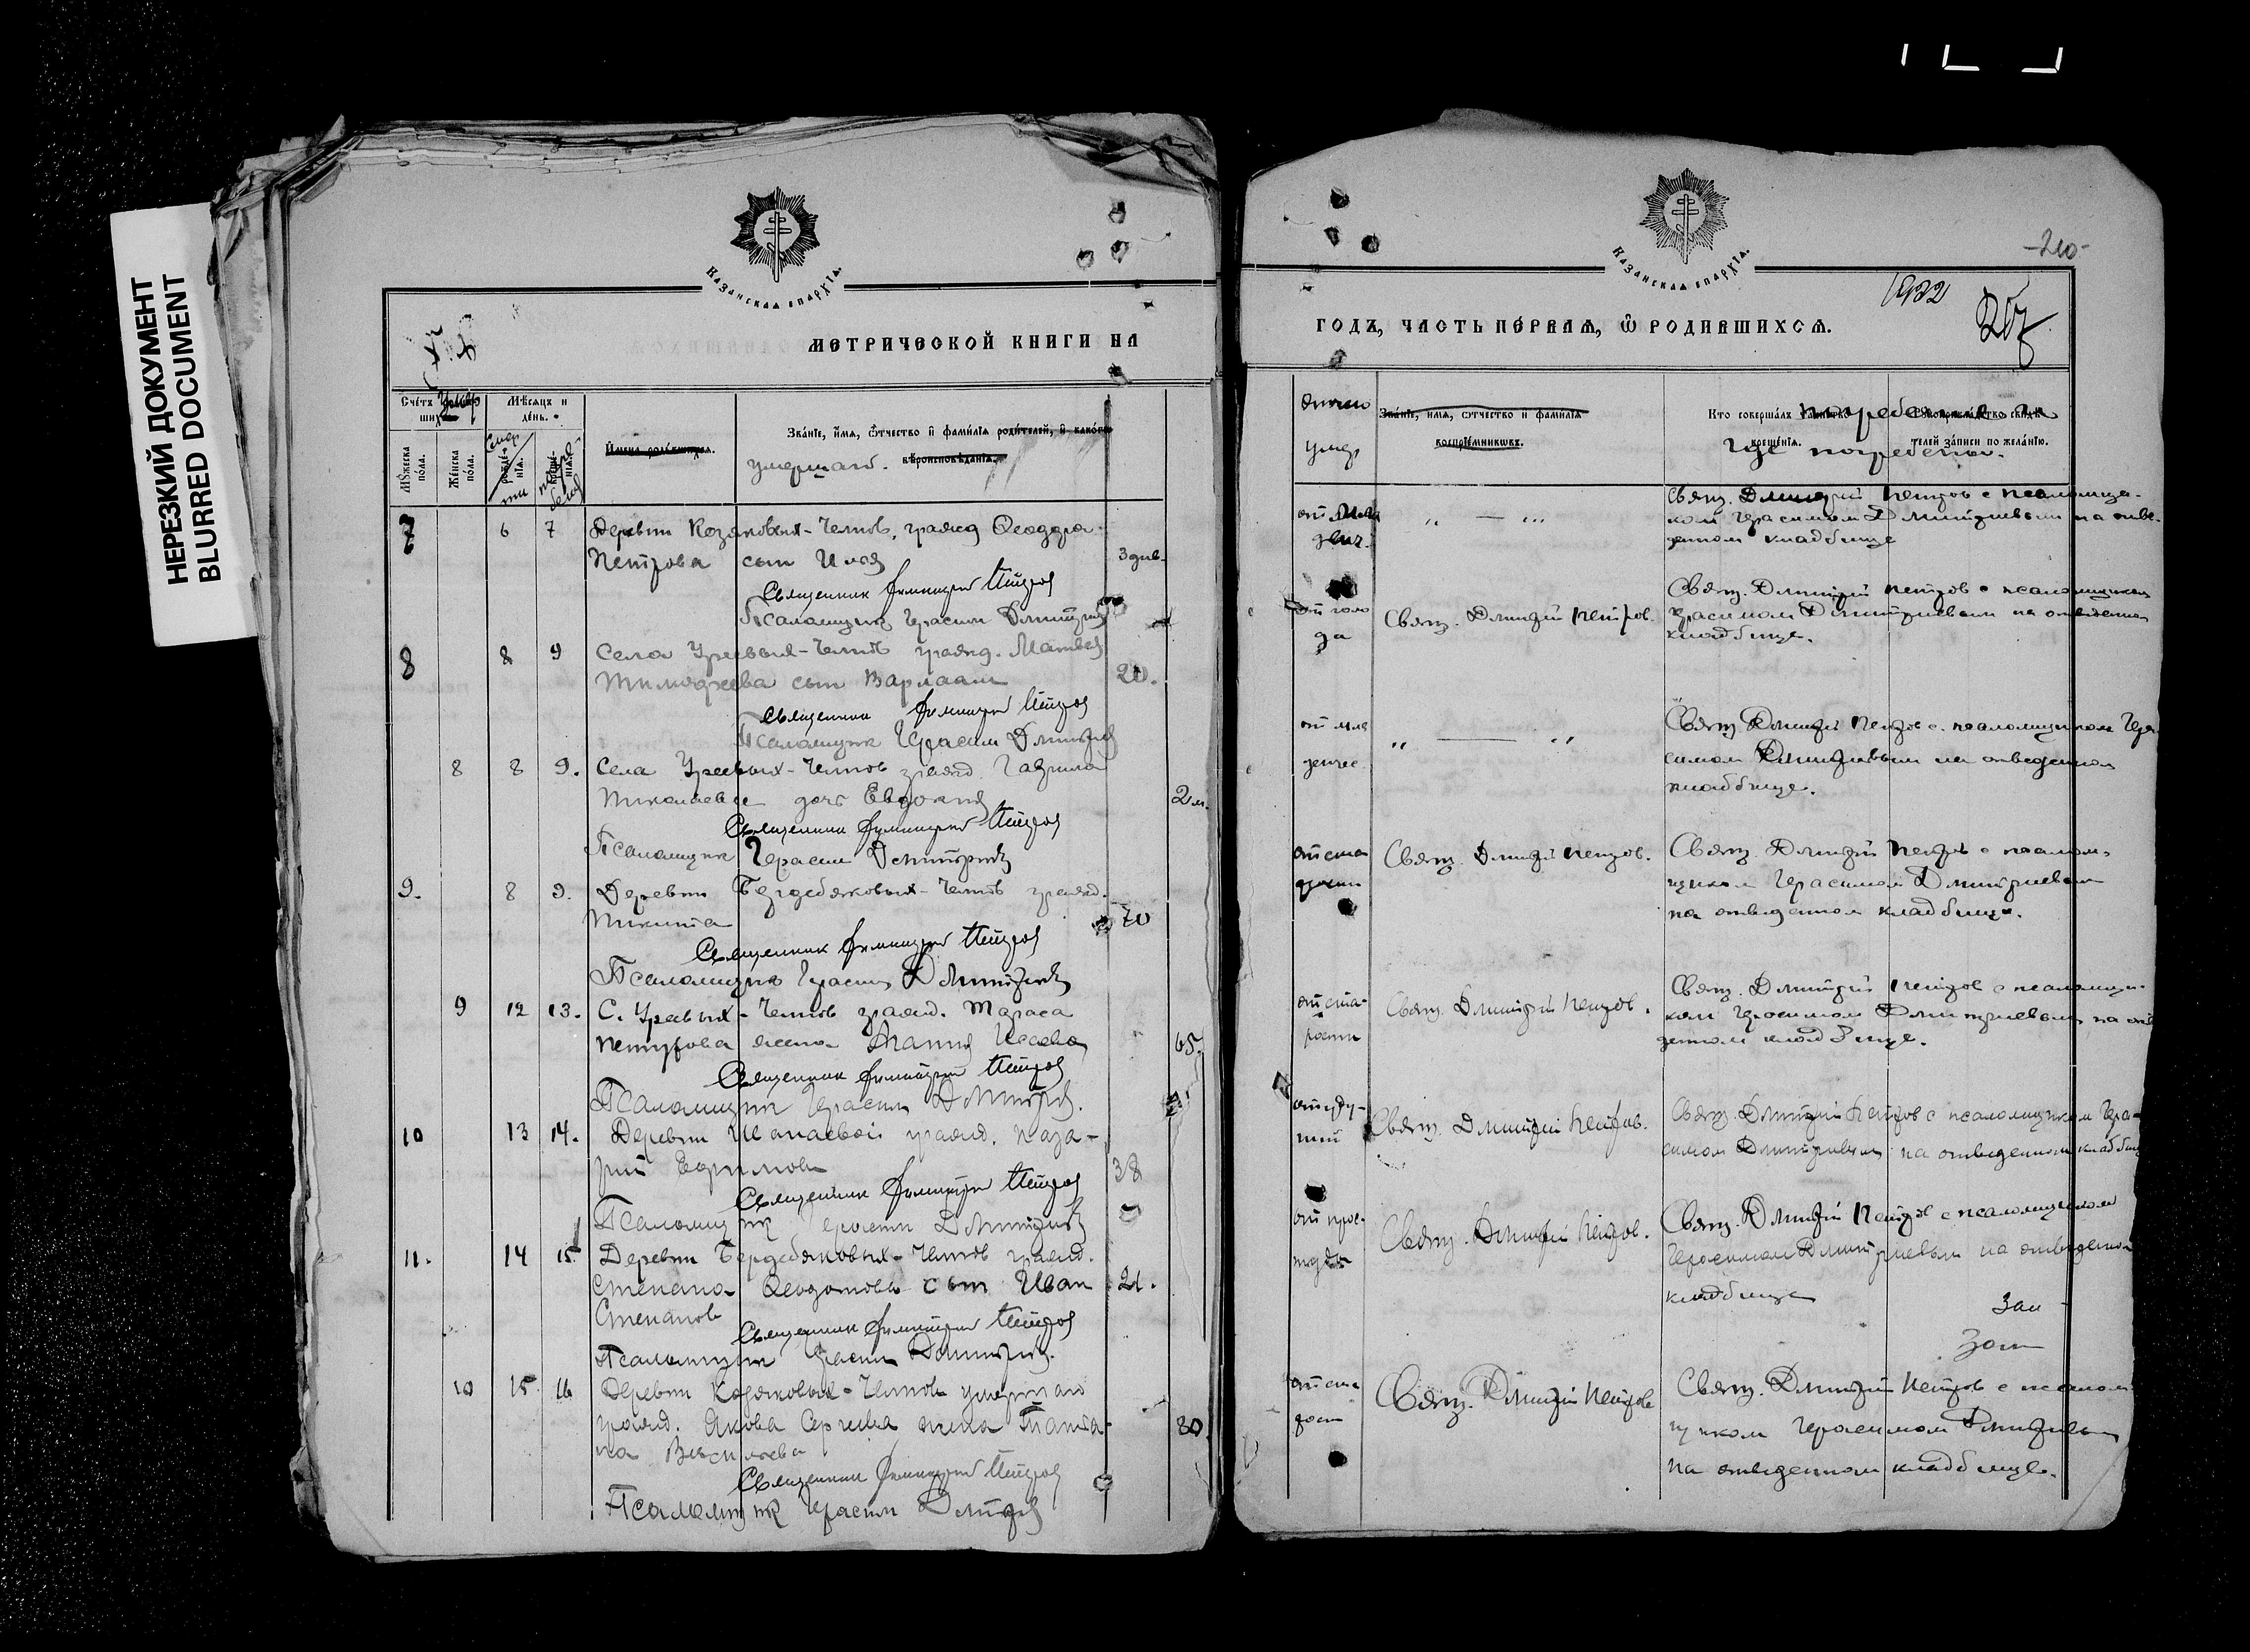 НЕРЕЗКИЙ ДОКУМЕНТ
BLURRED DOCUMENT
Казанская епархїѧ.
МЕТРИЧЕСКОЙ КНИГИ НА
Счетъ умер
ших
Мѣсяцъ и
день.
Мꙋжеска
пола.
Женска
пола.
Имена родившихся.
Званїе, имя, ѿчество и фамилїя родителей, и какого
вѣроисповѣданїя.
умершаго.
7 6 7 Деревни Козяковых-Челнов, гражд Феодора
Петрова сын Илья 3 дне.
Священник Димитрий Петров
Псаломщик Герасим Дмитриев
8 8 9 Села Уреевых-Челнов гражд. Матвея
Тимофеева сын Варлаам
Священник Димитрий Петров
Псаломщик Герасим Дмитриев
8 8 9. Села Уреевых-Челнов гражд. Гаврила
Николаева дочь Евдокия 2 м.
Священник Димитрий Петров
Псаломщик Герасим Дмитриев
9. 8 9. Деревни Бердебяковых-Челнов гражд.
Никита 70
Священник Димитрий Петров
Псаломщик Герасим Дмитриев
9 12 13. С. Уреевых-Челнов гражд. Тараса
Петрова жена Исаева 65.
Священник Димитрий Петров
Псаломщик Герасим Дмитриев.
10 13 14. Деревни гражд. Наза-
рий Ефимов 38
Священник Димитрий Петров
Псаломщик Герасим Дмитриев
11. 14 15 Деревни Бердебяковых-Челнов гражд.
Степана Феодотова сын Иван 21.
Степанов
Священник Димитрий Петров
Псаломщик Герасим Дмитриев.
10 15 16 Деревни Козяковых-Челнов умершаго
гражд. Якова Сергеева жена Татиа-
на Васильева 80.
Священник Димитрий Петров
Псаломщик Герасим Дмитриев
Казанская епархїѧ.
-210-
1922
ГОДЪ, ЧАСТЬ ПЕРВАЯ, Ѿ РОДИВШИХСЯ.
отчего
умер
Званїе, имя, ѿчество и фамилїя
воспрїемниковъ.
Кто совершалъ погребение и
где погребены.
крещенїя.
телей записи по желанїю.
от мла
денч. „ — „ Свящ. Димитрий Петров с псаломщи-
ком Герасимом Дмитриевым на отве-
денном кладбище
от голо
да Свящ. Дмитрий Петров. Свящ. Дмитрий Петров с псаломщиком
Герасимом Дмитриевым на отведенном
кладбище.
от мла
денчес. „ — „ Свящ Дмитрий Петров с псаломщиком Гера
симом Дмитриевым на отведенном
кладбище.
от ста
рости Свящ. Дмитрий Петров. Свящ. Дмитрий Петров с псалом-
щиком Герасимом Дмитриевым
на отведенном кладбище.
от ста-
рости Свящ. Дмитрий Петров. Свящ. Дмитрий Петров с псаломщи-
ком Герасимом Дмитриевым на отве
денном кладбище.
Свящ. Дмитрий Петров. Свящ. Дмитрий Петров с псаломщиком Гера-
симом Дмитриевым на отведенном кладбищ
от прос-
туды Свящ. Дмитрий Петров. Свящ. Дмитрий Петров с псаломщиком
Герасимом Дмитриевым на отведенном
кладбище
от ста
рост Свящ. Дмитрий Петров Свящ. Дмитрий Петров с псалом-
щиком Герасимом Дмитриевым
на отведенном кладбище.